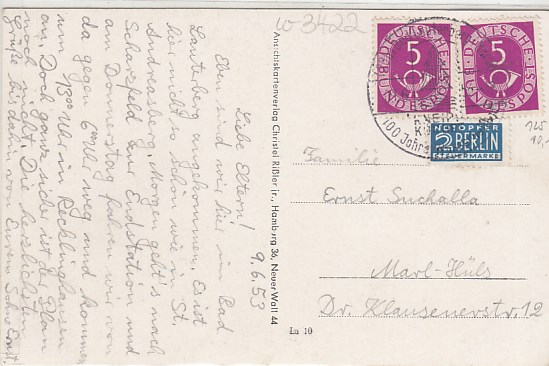 w 3422
9.6.53
Liebe Eltern!
Eben sind wir hier in Bad
Lauterberg angekommen. Es ist
hier nicht so schön wie in St.
Andreasberg. Morgen geht's nach
Scharzfeld der Endstation und
am Donnerstag fahren wir von
da gegen 6 Uhr weg und kommen
um 1/3 00 Uhr in Recklinghausen
an. Doch ganz sicher ist der Plan
noch nicht. Die herzlichsten
Grüße von Eurem Sohne Ernst!
Ansichtskartenverlag Christel Rißler jr., Hamburg 36, Neuer Wall 44
La 10
5
DEUTSCHE
BUNDESPOST
5
DEUTSCHE
BUNDESPOST
100 Jahre
NOTOPFER
2 BERLIN
STEUERMARKE
Familie
Ernst Suchalla
Marl-Hüls
Dr. Klausenerstr. 12